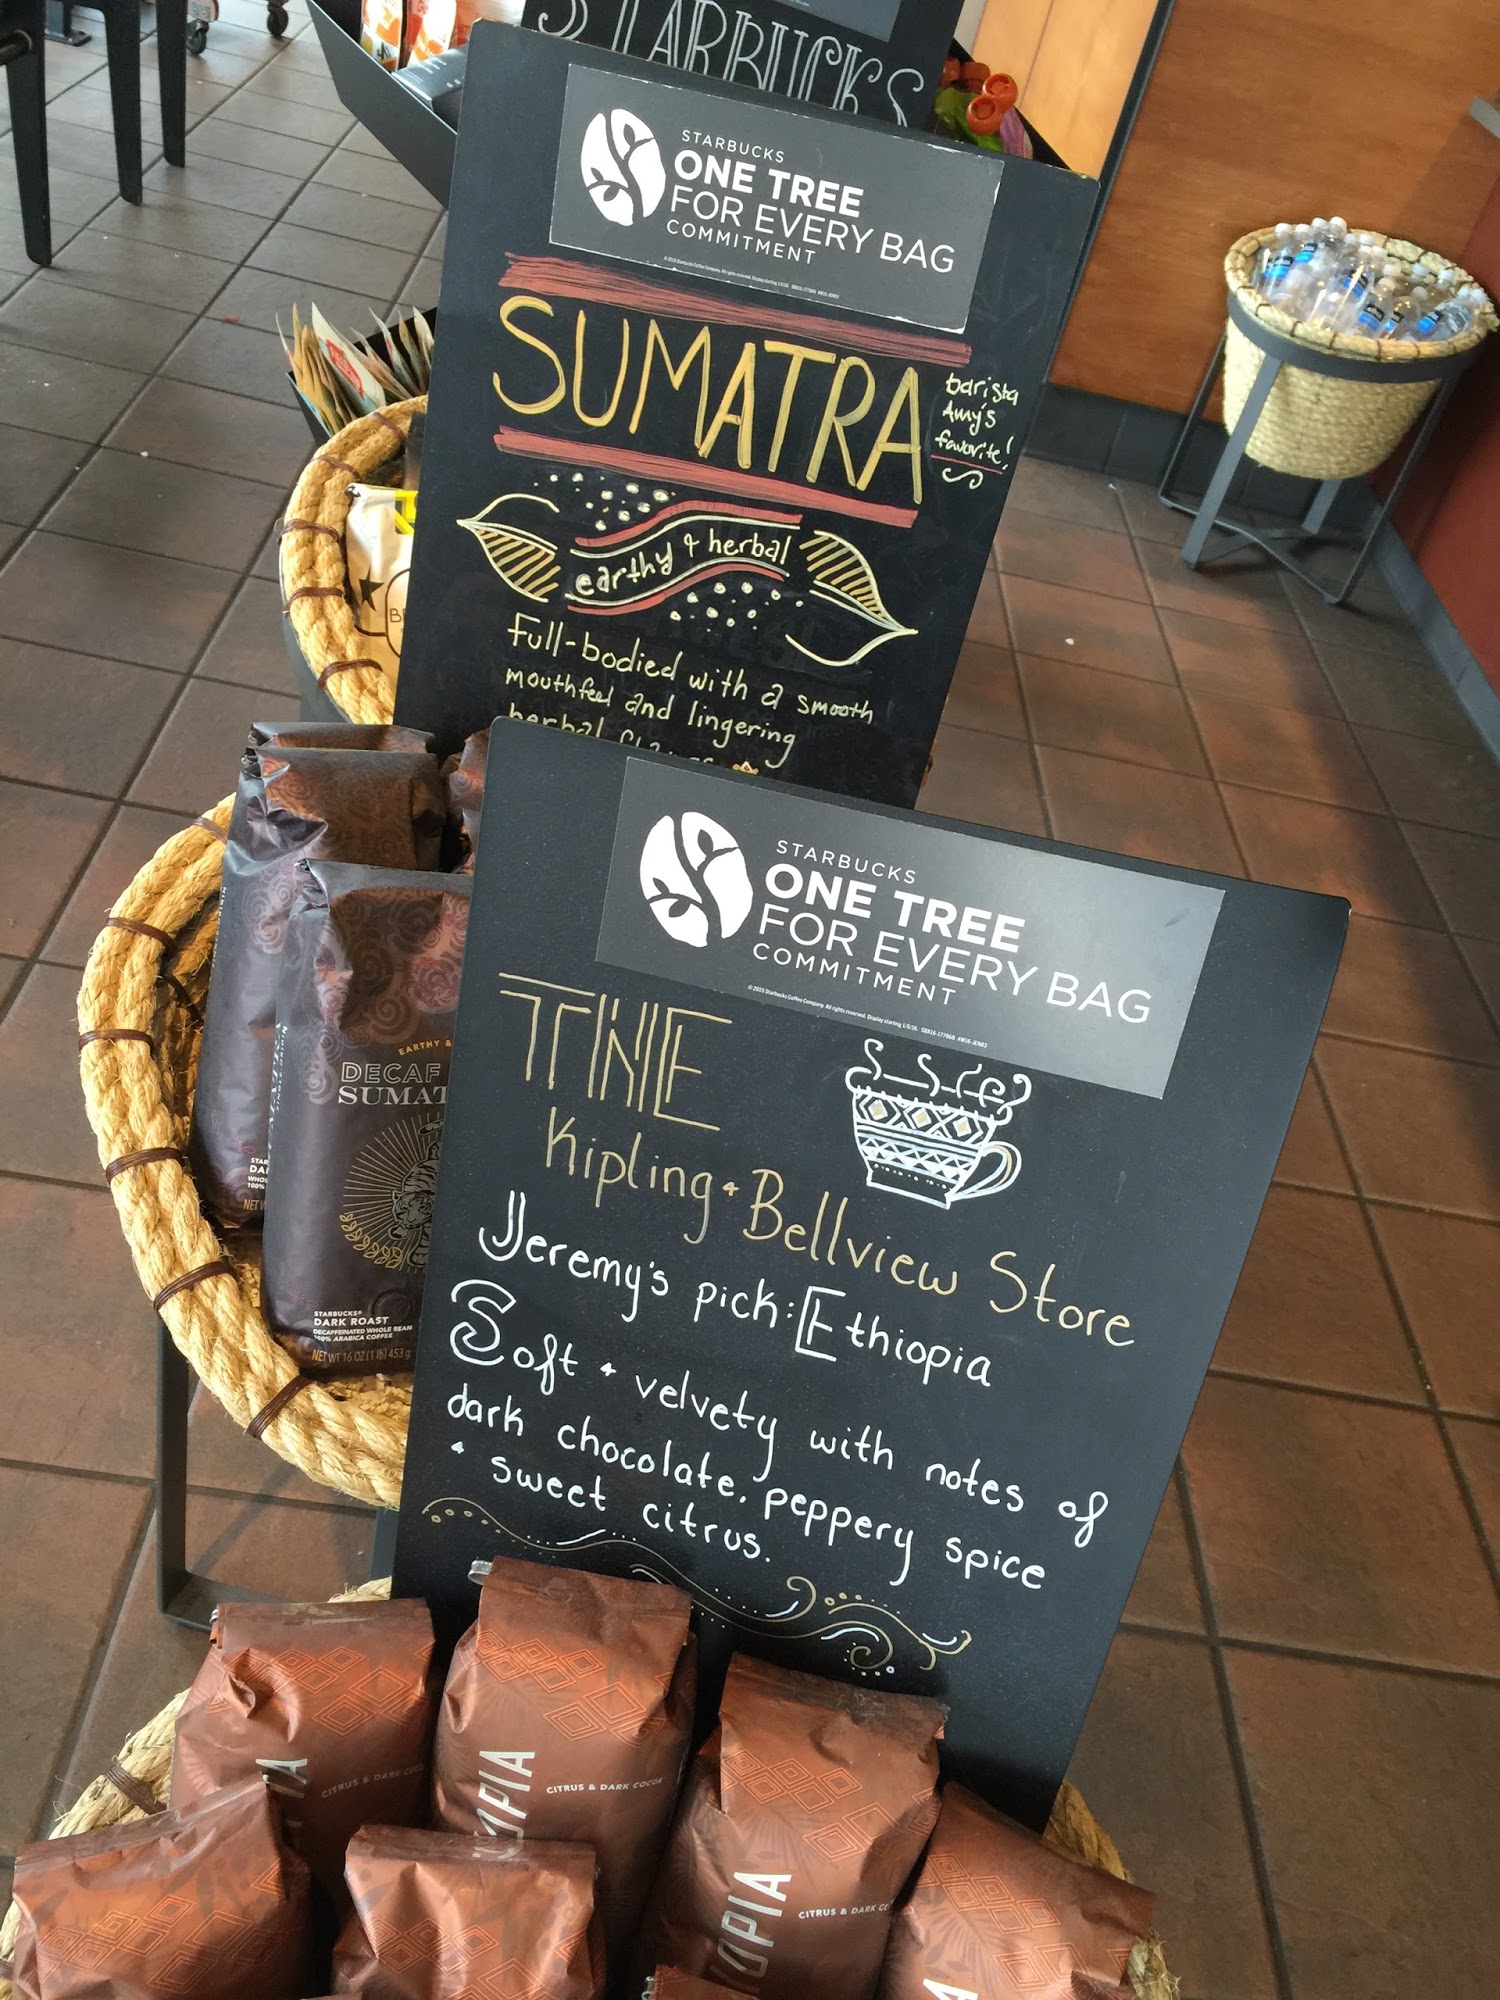 STARBUCKS
STARBUCKS
ONE TREE
FOR EVERY BAG
COMMITMENT
SUMATRA
barista
Amy's
favorite!
earthy & herbal
Full-bodied with a smooth
mouthfeel and lingering
herbal
STARBUCKS
ONE TREE
FOR EVERY BAG
COMMITMENT
© 2015 Starbucks Coffee Company. All rights reserved. Display starting 1/5/16. SBX16-177868 #W16-JEN83
THE
Kipling & Bellview Store
Jeremy's pick: Ethiopia
Soft & velvety with notes of
dark chocolate, peppery spice
& sweet citrus.
EARTHY &
DECAF
SUMAT
STARBUCKS®
DARK ROAST
DECAFFEINATED WHOLE BEAN
100% ARABICA COFFEE
NET WT 16 OZ (1 lb) 453 g
CITRUS & DARK COCOA
OPIA
CITRUS & DARK CO
TOPIA